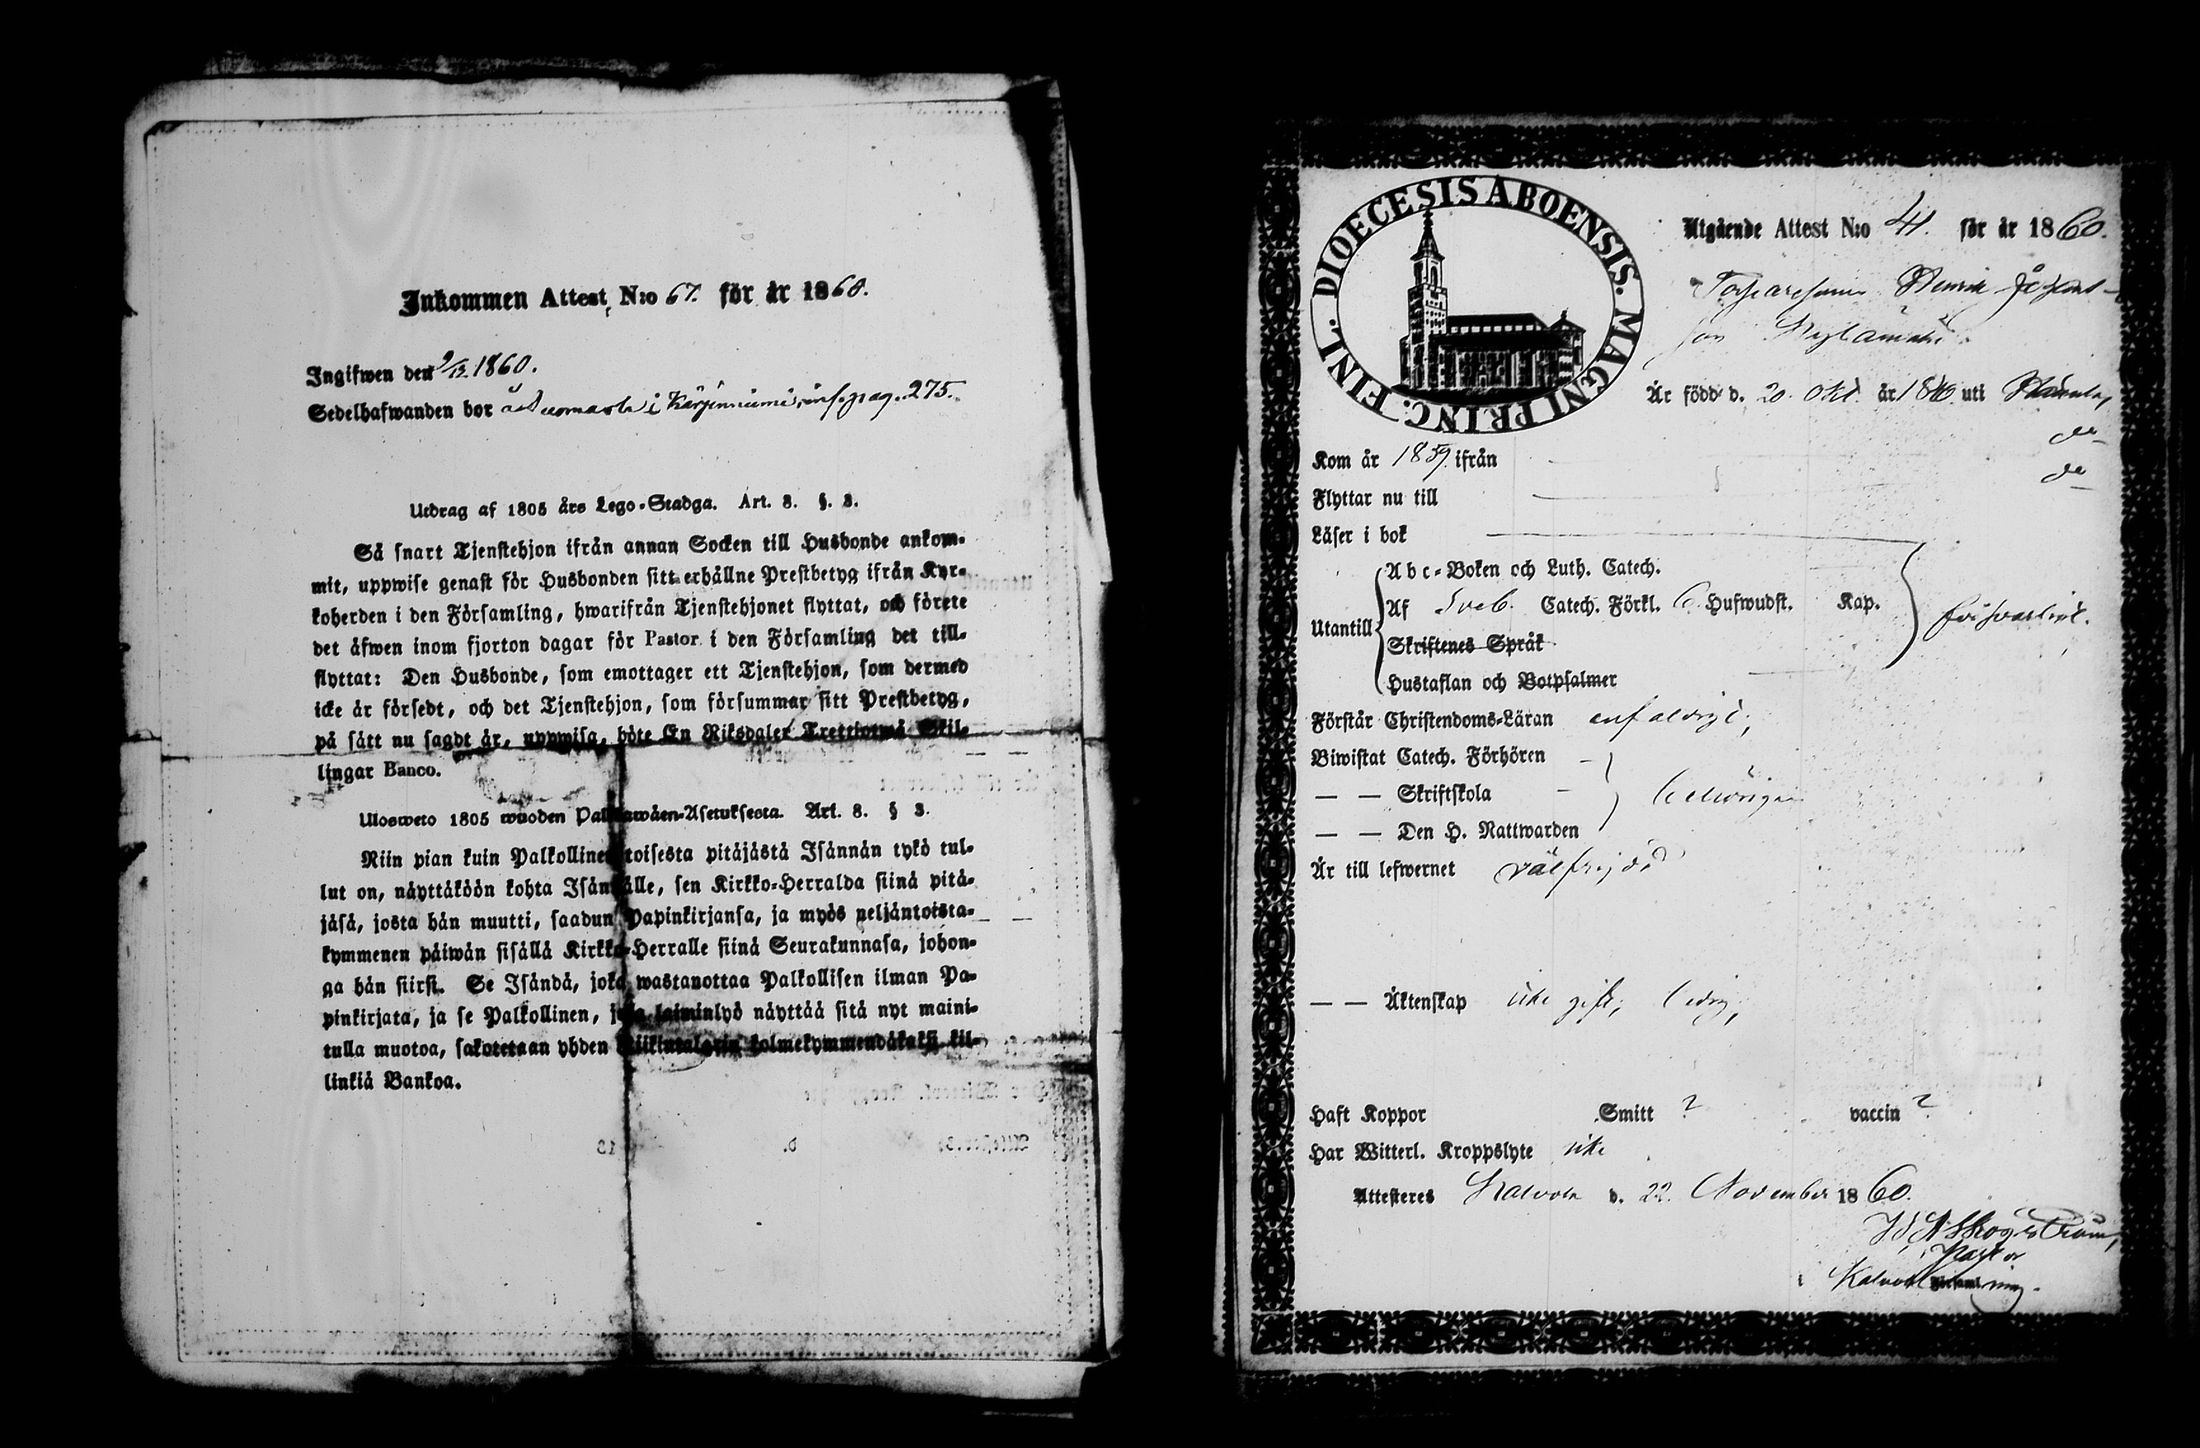 Inkommen Attest, N:o 67. för år 1860.
Ingifwen den 9/12. 1860.
Sedelhafwanden bor i Kärjenniemi, inf. pag. 275.
Utdrag af 1805 års Lego-Stadga. Art. 8. §. 3.
Så snart Tjenstehjon ifrån annan Socken till Husbonde ankom-
mit, uppwise genast för Husbonden sitt erhållne Prestbetyg ifrån Kyr-
koherden i den Församling, hwarifrån Tjenstehjonet flyttat, och förete
det äfwen inom fjorton dagar för Pastor i den Församling det till-
flyttat: Den Husbonde, som emottager ett Tjenstehjon, som dermed
icke är försedt, och det Tjenstehjon, som försummar sitt Prestbetyg,
på sätt nu sagdt är, uppwisa, böte En Riksdaler Trettiotwå Skil-
lingar Banco.
Ulosweto 1805 wuoden Palkkawäen-Asetuksesta. Art. 8. § 3.
Niin pian kuin Palkollinen toisesta pitäjästä Isännän tykö tul-
lut on, näyttäköön kohta Isännälle, sen Kirkko-Herralda siinä pitä-
jäsä, josta hän muutti, saadun Papinkirjansa, ja myös neljäntoista-
kymmenen päiwän sisällä Kirkko-Herralle siinä Seurakunnasa, johon-
ga hän siirsi. Se Isändä, joka wastanottaa Palkollisen ilman Pa-
pinkirjata, ja se Palkollinen, joka laiminlyö näyttää sitä nyt maini-
tulla muotoa, sakotetaan yhden Riikintalarin kolmekymmendäkaksi kil-
linkiä Bankoa.
DIOECESIS ABOENSIS. MAGNI PRINC. FINL.
Utgående Attest N:o 41. för år 1860.
Torparesonen Henrik
son
Är född d. 20. Okt. år 1840 uti
Kom år 1859. ifrån do
Flyttar nu till do
Läser i bok
Utantill
Abc-Boken och Luth. Catech.
Af Sveb. Catech. Förkl. 6 Hufwudst. Kap.
Skriftenes Språk
Hustaflan och Botpsalmer
försvarligt.
Förstår Christendoms-Läran enfaldigt,
Biwistat Catech. Förhören
— — Skriftskola
— — Den H. Nattwarden
behörigen
Är till lefwernet välfrejdad
— — Äktenskap icke gift, ledig,
Haft Koppor Smitt ? vaccin ?
Har Witterl. Kroppslyte icke
Attesteres Kalvola d. 22. November 1860.
Skogström,
Pastor
i Kalvola Församling.